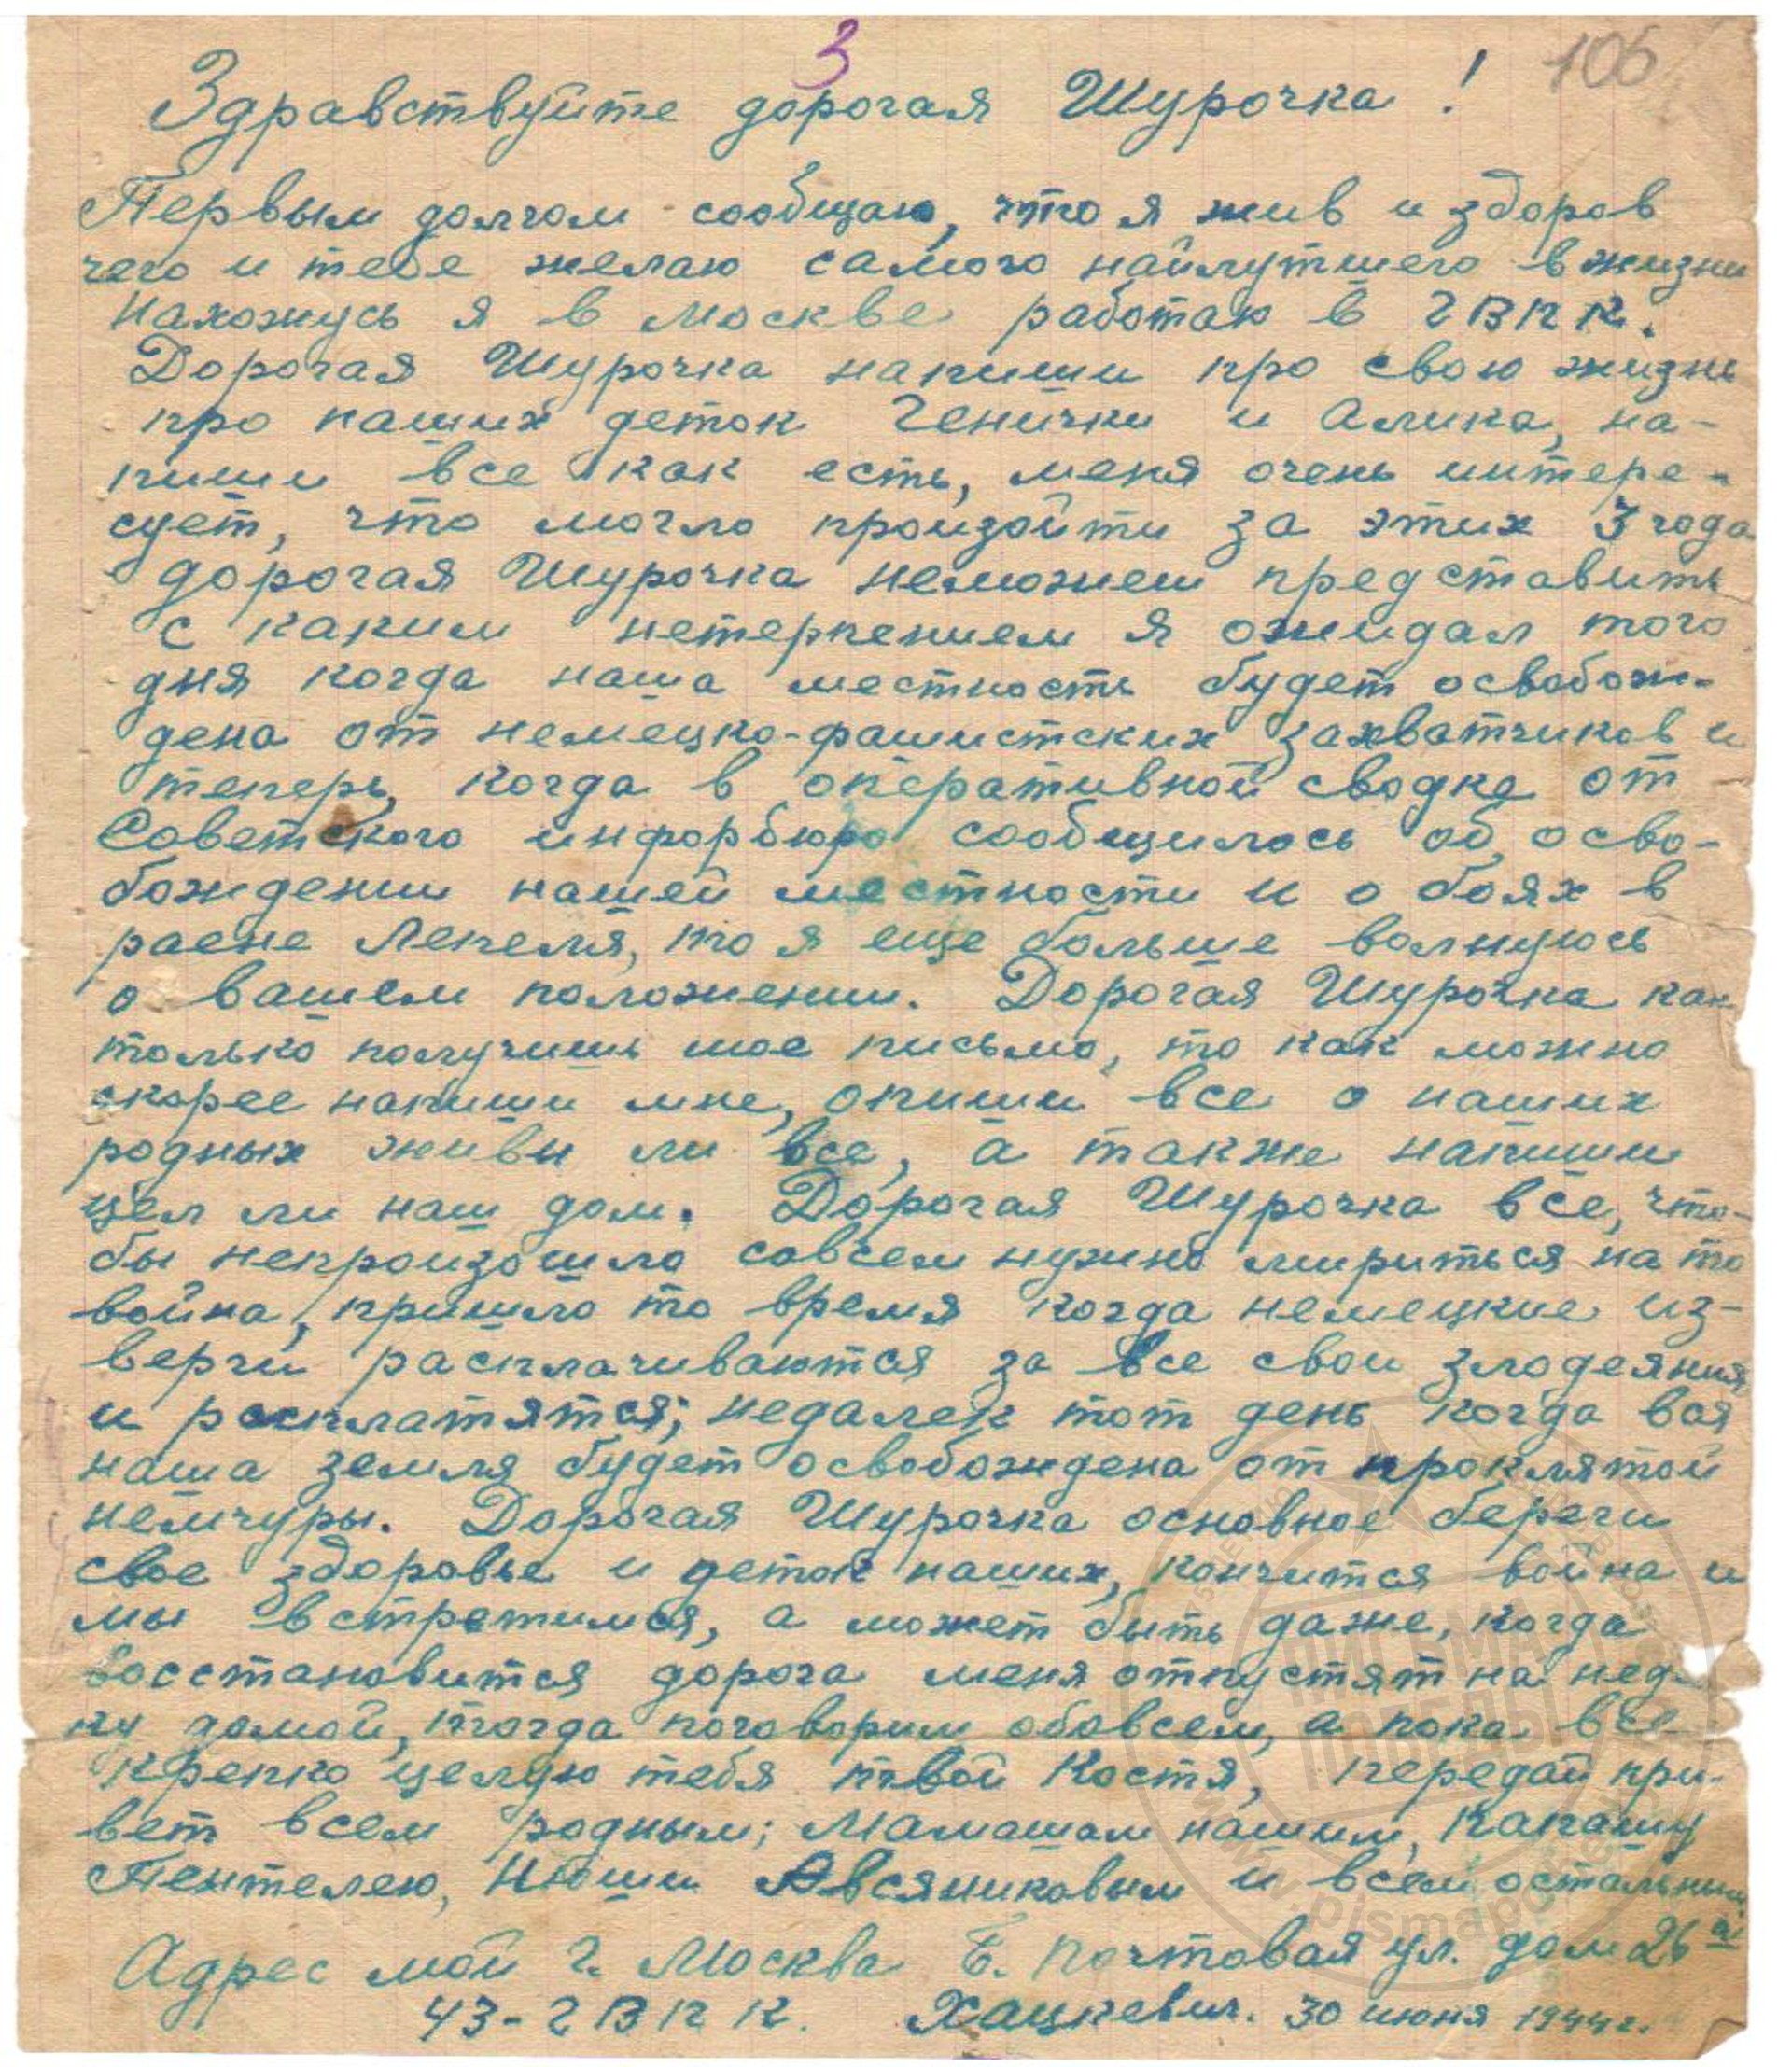 3
106
Здравствуйте дорогая Шурочка!
Первым долгом сообщаю, что я жив и здоров
чего и тебе желаю самого найлутшего в жизни
Нахожусь я в Москве работаю в ГВПК.
Дорогая Шурочка напиши про свою жизнь
про наших деток Генички и Алика, на-
пиши все как есть, меня очень интере-
сует, что могло произойти за этих 3 года
дорогая Шурочка неможеш представить
с каким нетерпением я ожидал того
дня когда наша местность будет освобож-
дена от немецко-фашистских захватчиков и
теперь, когда в оперативной сводке от
Советского информбюро сообщилось об осво-
бождении нашей местности и о боях в
раене Лепеля, то я еще больше волнуюсь
о вашем положении. Дорогая Шурочка как
только получишь мое письмо, то как можно
скорее напиши мне, опиши все о наших
родных живы ли все, а также напиши
цел ли наш дом. Дорогая Шурочка все, что-
бы непроизошло совсем нужно мириться на то
война, пришло то время когда немецкие из-
верги расплачиваются за все свои злодеяния
и расплатятся; недалек тот день когда вся
наша земля будет освобождена от проклятой
немчуры. Дорогая Шурочка основное береги
свое здоровье и деток наших, кончится война и
мы встретимся, а может быть даже, когда
восстановится дорога меня отпустят на неде-
лу домой, тогда поговорим обовсем, а пока все
крепко целую тебя твой Костя, передай при-
вет всем родным; Мамашам нашим, Папашу
Пентелею, Авсяниковым и всем остальным
Адрес мой г. Москва Б. Почтовая ул. дом 26 а
43-ГВПК. Хацкевич. 30 июня 1944г.
ПИСЬМА
ПОБЕДЫ